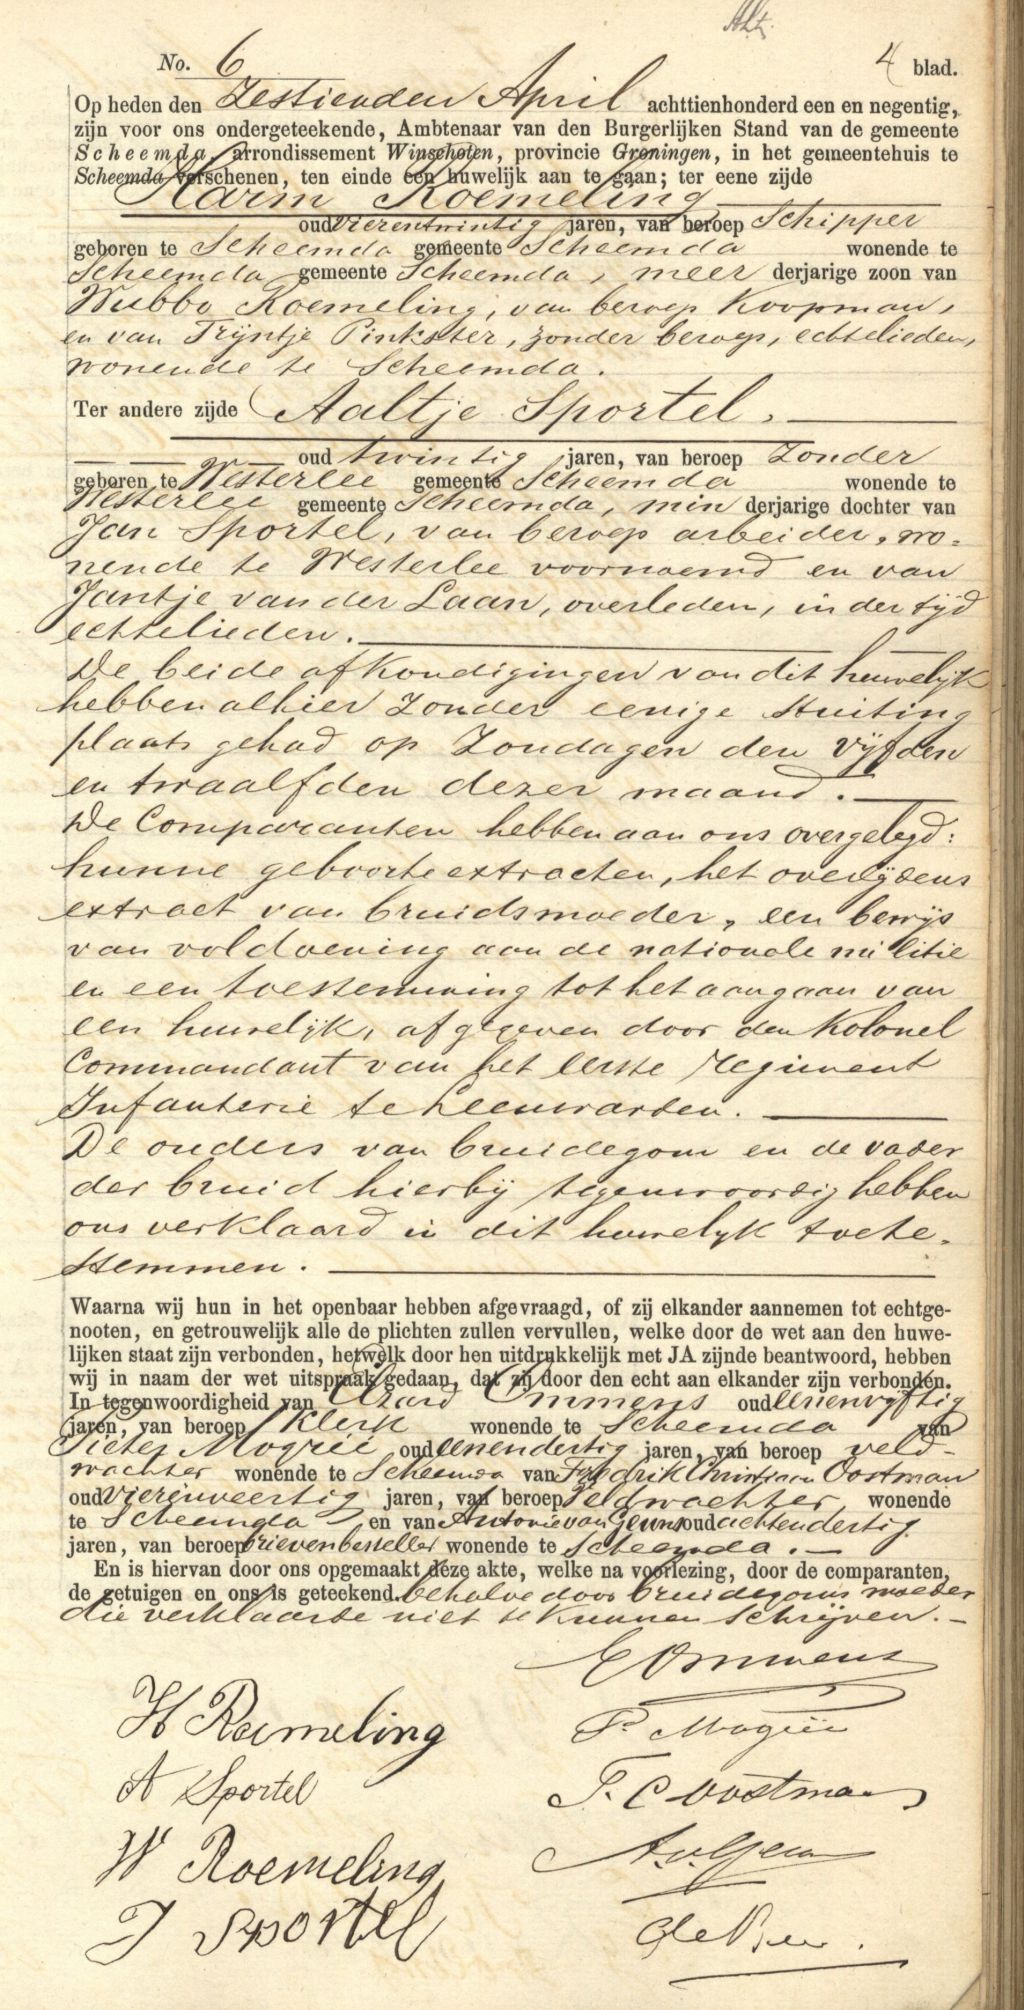 No. 6
4 blad.
Op heden den Zestienden April achttienhonderd een en negentig,
zijn voor ons ondergeteekende, Ambtenaar van den Burgerlijken Stand van de gemeente
Scheemda, arrondissement Winschoten, provincie Groningen, in het gemeentehuis te
Scheemda verschenen, ten einde een huwelijk aan te gaan; ter eene zijde
Harm Roemeling
oud vierentwintig jaren, van beroep Schipper
geboren te Scheemda gemeente Scheemda wonende te
Scheemda gemeente Scheemda, meer derjarige zoon van
Wubbo Roemeling, van beroep Koopman,
en van Trijntje Pinkster, zonder beroep, echtelieden,
wonende te Scheemda.
Ter andere zijde Aaltje Sportel.
oud twintig jaren, van beroep Zonder
geboren te Westerlee gemeente Scheemda wonende te
Westerlee gemeente Scheemda, min derjarige dochter van
Jan Sportel, van beroep arbeider, wo-
nende te Westerlee voornoemd en van
Jantje van der Laan, overleden, in der tijd
echtelieden.
De beide afkondigingen van dit huwelijk
hebben alhier zonder eenige stuiting
plaats gehad op Zondagen den vijfden
en twaalfden dezer maand.
De Comparanten hebben aan ons overgelegd:
hunne geboorte extracten, het overlijdens
extract van bruidsmoeder, een bewijs
van voldoening aan de nationale militie
en een toestemming tot het aangaan van
een huwelijk, afgegeven door den Kolonel
Commandant van het eerste regiment
Infanterie te Leeuwarden.
De ouders van bruidegom en de vader
der bruid hierbij tegenwoordig hebben
ons verklaard in dit huwelijk toete-
stemmen.
Waarna wij hun in het openbaar hebben afgevraagd, of zij elkander aannemen tot echtge-
nooten, en getrouwelijk alle de plichten zullen vervullen, welke door de wet aan den huwe-
lijken staat zijn verbonden, hetwelk door hen uitdrukkelijk met JA zijnde beantwoord, hebben
wij in naam der wet uitspraak gedaan, dat zij door den echt aan elkander zijn verbonden.
In tegenwoordigheid van Ommens oud eenenvijftig
jaren, van beroep Klerk wonende te Scheemda van
Pieter Mogrée oud eenendertig jaren, van beroep veld-
wachter wonende te Scheemda van Fredrik Christiaan Oostman
oud vierenveertig jaren, van beroep Veldwachter, wonende
te Scheemda, en van Antonie van Geuns oud achtendertig
jaren, van beroep brievenbesteller wonende te Scheemda.
En is hiervan door ons opgemaakt deze akte, welke na voorlezing, door de comparanten,
de getuigen en ons is geteekend. behalve door bruidegoms moeder
die verklaarde niet te kunnen schrijven.
E Ommens
H Roemeling
P. Mogrée
A Sportel
F. C Oostman
W Roemeling
J Sportel